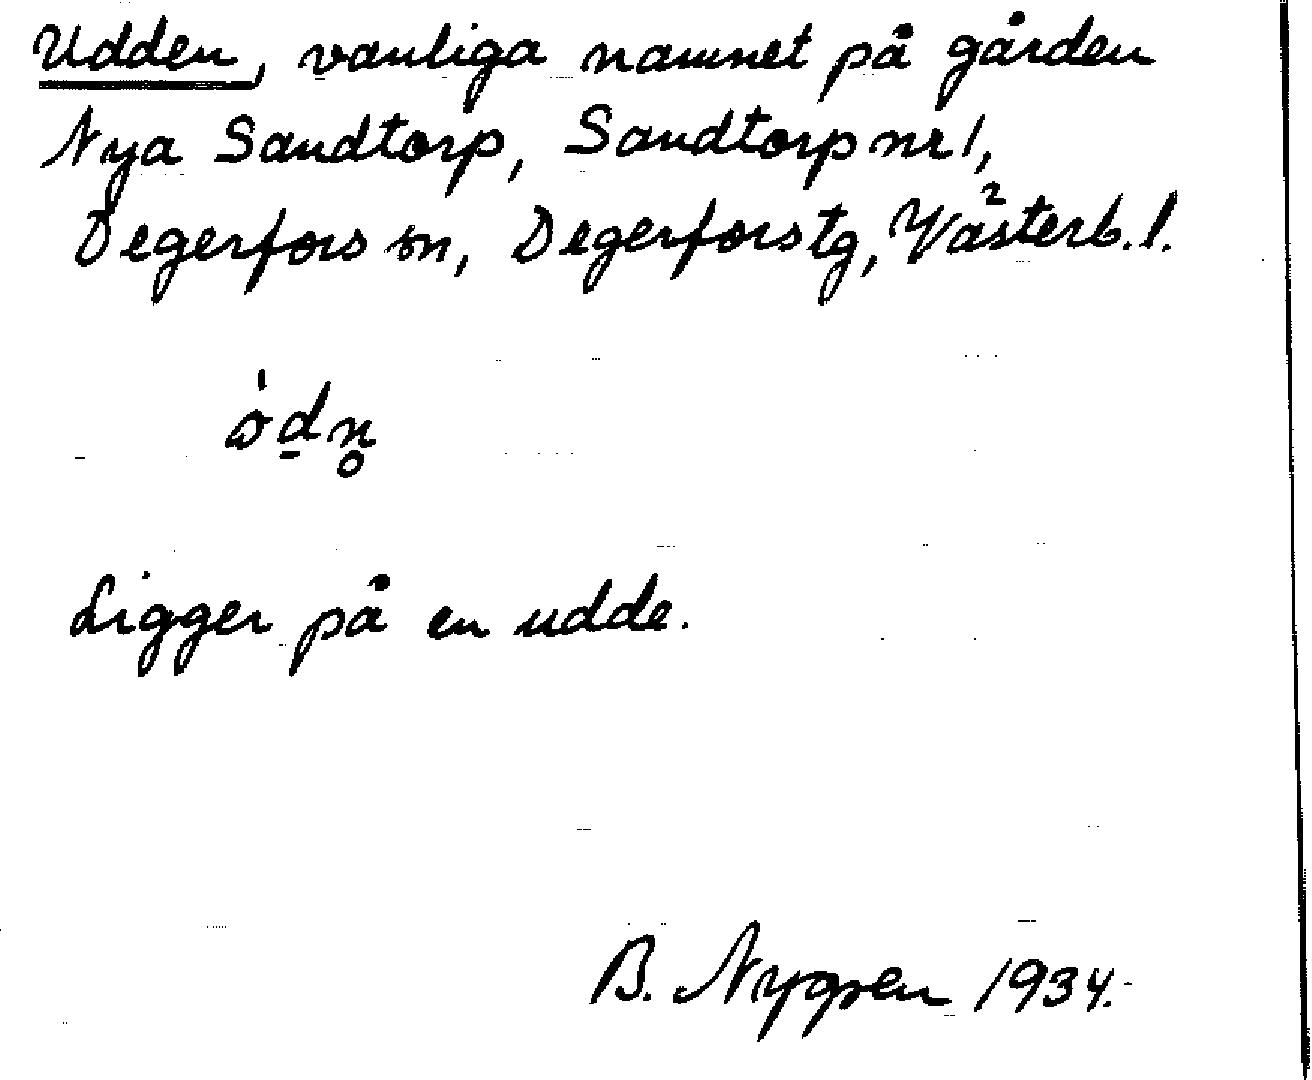 Udden, vanliga namnet på gården
Nya Sandtorp, Sandtorp nr 1,
Degerfors sn, Degerfors tg, Västerb. l.
Ligger på en udde.
B. Nygren 1934.